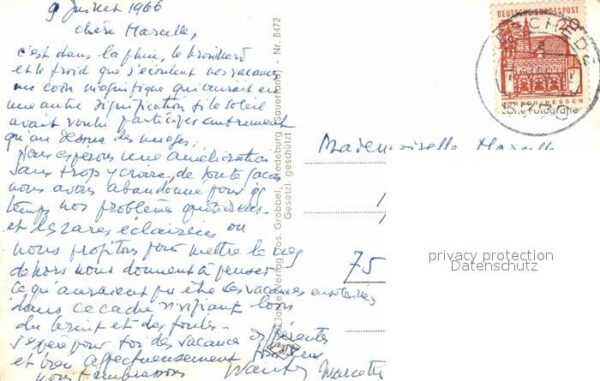 9 Juillet 1966
Chère Marcelle,
c'est dans la pluie, le brouillard
et le froid que s'écoulent nos vacances
un coin magnifique qui aurait eu
une autre signification si le soleil
avait voulu participer autrement
qu'au dessus des nuages.
Nous espérons une amélioration
sans trop y croire, de toute façon
nous avons abandonné pour
temps nos problèmes quotidiens
et les rares éclaircies où
nous profitons pour mettre le nez
dehors nous donnent à penser
ce qu'auraient pu être les vacances ensoleillées
dans ce cadre vivifiant loin
du bruit et des foules.
J'espère pour toi des vacances différentes
et bien affectueusement
nous t'embrassons
Marcelle
Mademoiselle Marcelle
75
Grobbel, Fredeburg (Sauerland) - Nr. 8472
Gesetzl. geschützt
DEUTSCHE BUNDESPOST
LORSCH/HESSEN
Echte Fotografie
privacy protection
Datenschutz